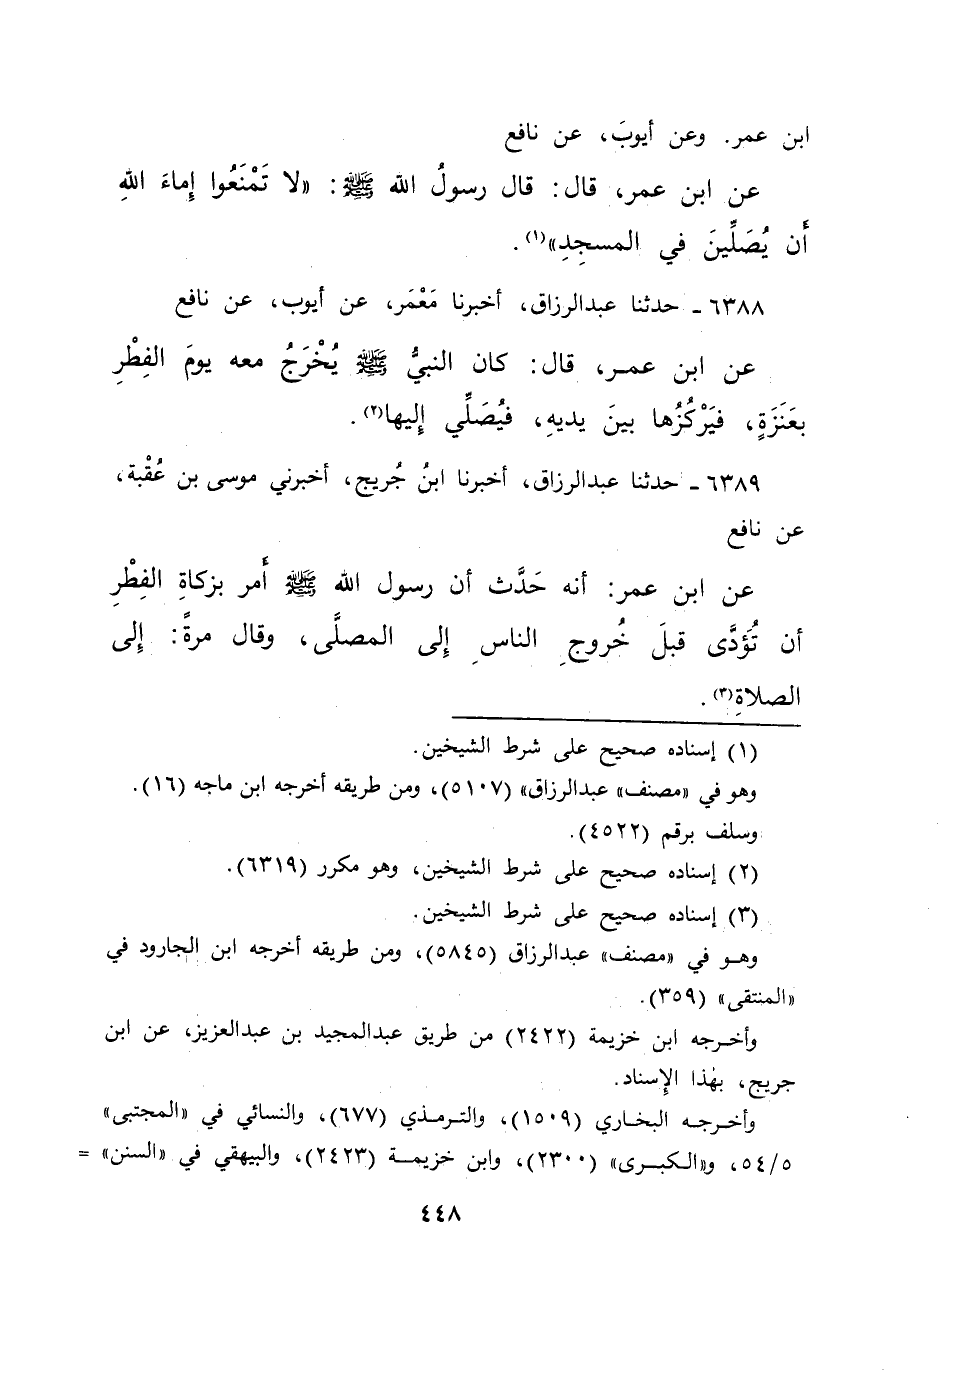 ابن عمر. وعن أيوبَ، عن نافع
عن ابن عمر، قال: قال رسولُ الله ﷺ: «لا تَمْنَعُوا إِماءَ اللهِ
أَن يُصَلِّينَ في المسجدِ»(١).
٦٣٨٨ ـ حدثنا عبدالرزاق، أخبرنا مَعْمَر، عن أيوب، عن نافع
عن ابن عمـر، قال: كان النبيُّ ﷺ يُخْرَجُ معه يومَ الفِطْرِ
بعَنَزَةٍ، فيَرْكُزُها بينَ يديهِ، فيُصَلِّي إليها(٢).
٦٣٨٩ ـ حدثنا عبدالرزاق، أخبرنا ابنُ جُريج، أخبرني موسى بن عُقْبة،
عن نافع
عن ابن عمر: أنه حَدَّث أن رسول الله ﷺ أَمر بزكاةِ الفِطْرِ
أن تُؤَدَّى قبلَ خُروجِ الناسِ إلى المصلَّى، وقال مرةً: إلى
الصلاةِ(٣).
(١) إسناده صحيح على شرط الشيخين.
وهو في «مصنف» عبدالرزاق» (٥١٠٧)، ومن طريقه أخرجه ابن ماجه (١٦).
وسلف برقم (٤٥٢٢).
(٢) إسناده صحيح على شرط الشيخين، وهو مكرر (٦٣١٩).
(٣) إسناده صحيح على شرط الشيخين.
وهـو في «مصنف» عبدالرزاق (٥٨٤٥)، ومن طريقه أخرجه ابن الجارود في
«المنتقى» (٣٥٩).
وأخـرجه ابن خزيمة (٢٤٢٢) من طريق عبدالمجيد بن عبدالعزيز، عن ابن
جريج، بهٰذا الإِسناد.
وأخـرجـه البخـاري (١٥٠٩)، والتـرمـذي (٦٧٧)، والنسائي في «المجتبى»
٥٤/٥، و«الكبـرى» (٢٣٠٠)، وابن خزيمـة (٢٤٢٣)، والبيهقي في «السنن» =
٤٤٨